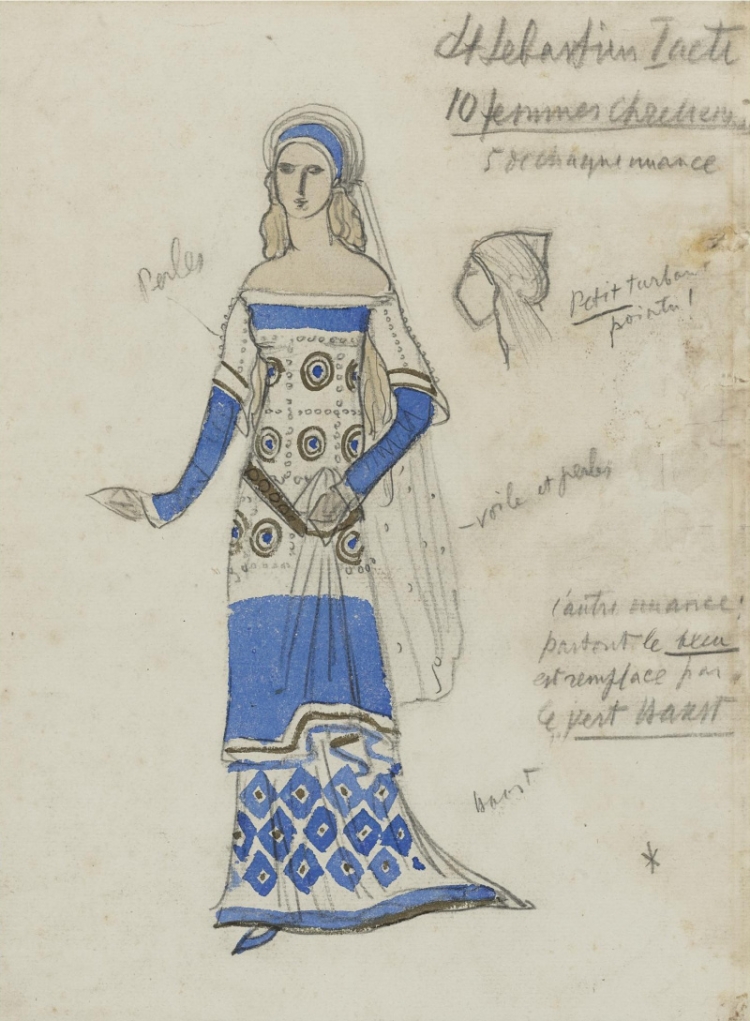 St Sebastien I acte
10 femmes Chretiennes
5 de chaque nuance
Perles
Petit turban
pointu !
voile et perles
l'autre nuance :
partout le bleu
est remplacé par
le vert